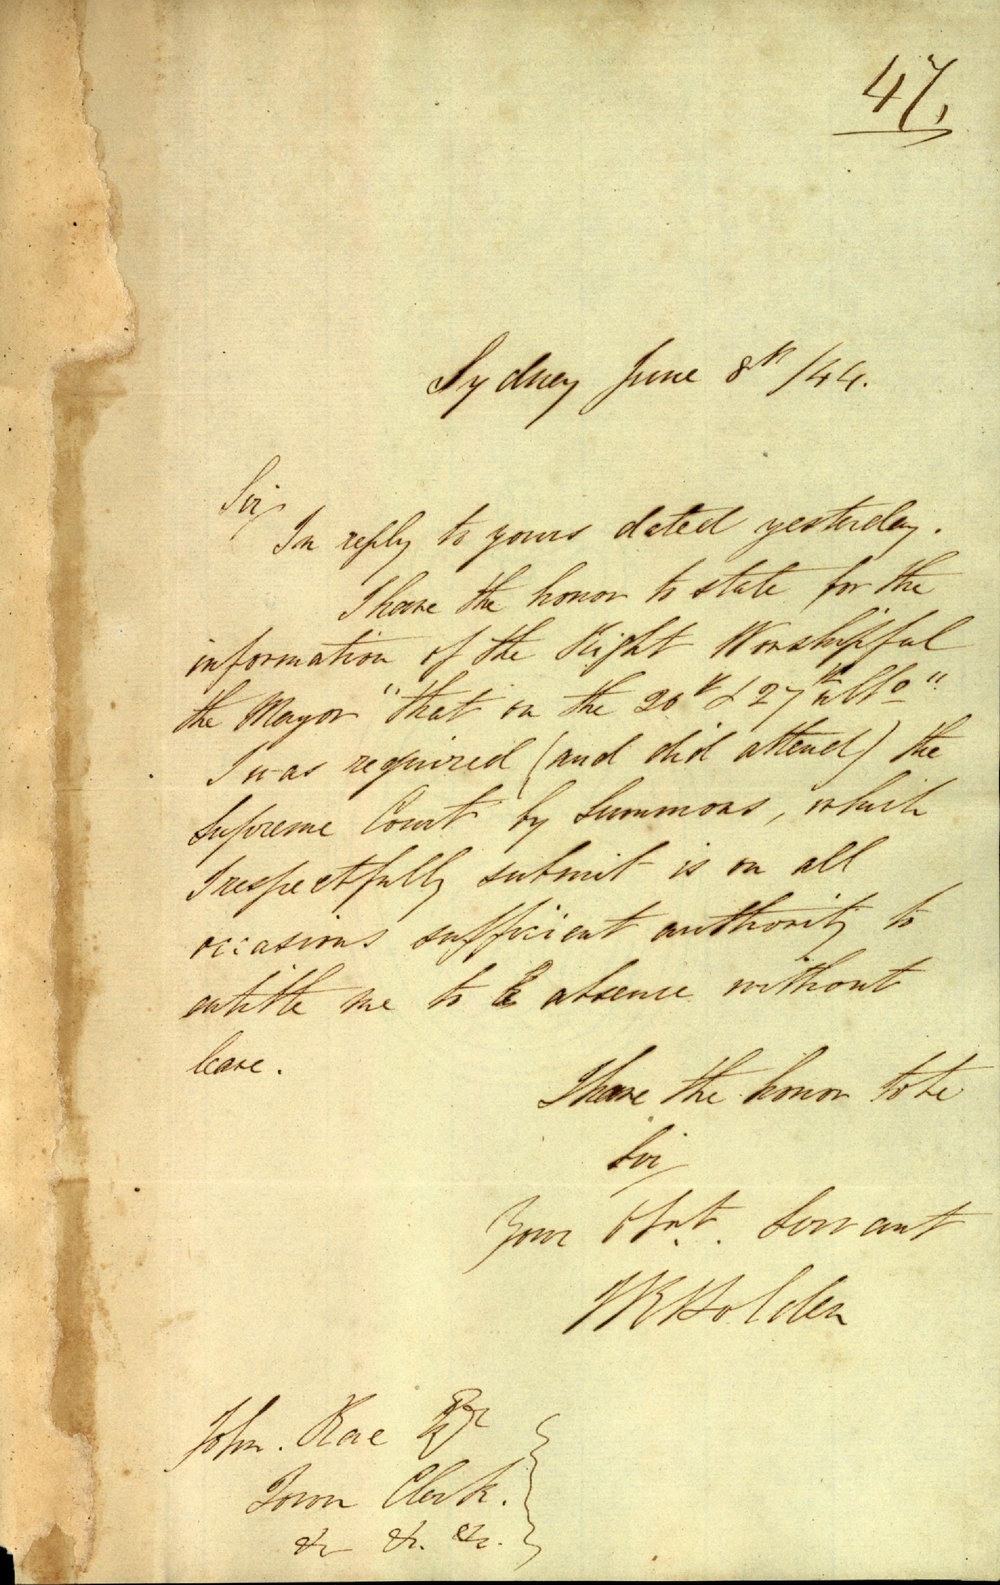 47,
Sydney June 8th /44.
Sir,
In reply to yours dated yesterday.
I have the honor to state for the
information of the Right Worshipful
the Mayor "that on the 20th & 27th ulto"
I was required (and did attend) the
Supreme Court by Summons, which
I respectfully submit is on all
occasions sufficient authority to
entitle me to absence without
leave.
I have the honor to be
Sir,
Your Obt. Servant
Holden
John. Rae Esqr
Town Clerk.
&c &c. &c.